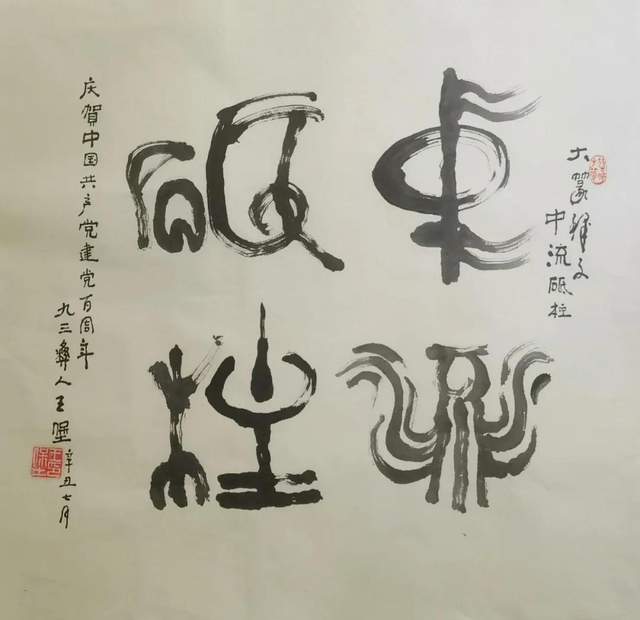 大篆释文
中流砥柱
中流
砥柱
庆賀中国共产党建党百周年
九三彝人王堡
辛丑七月